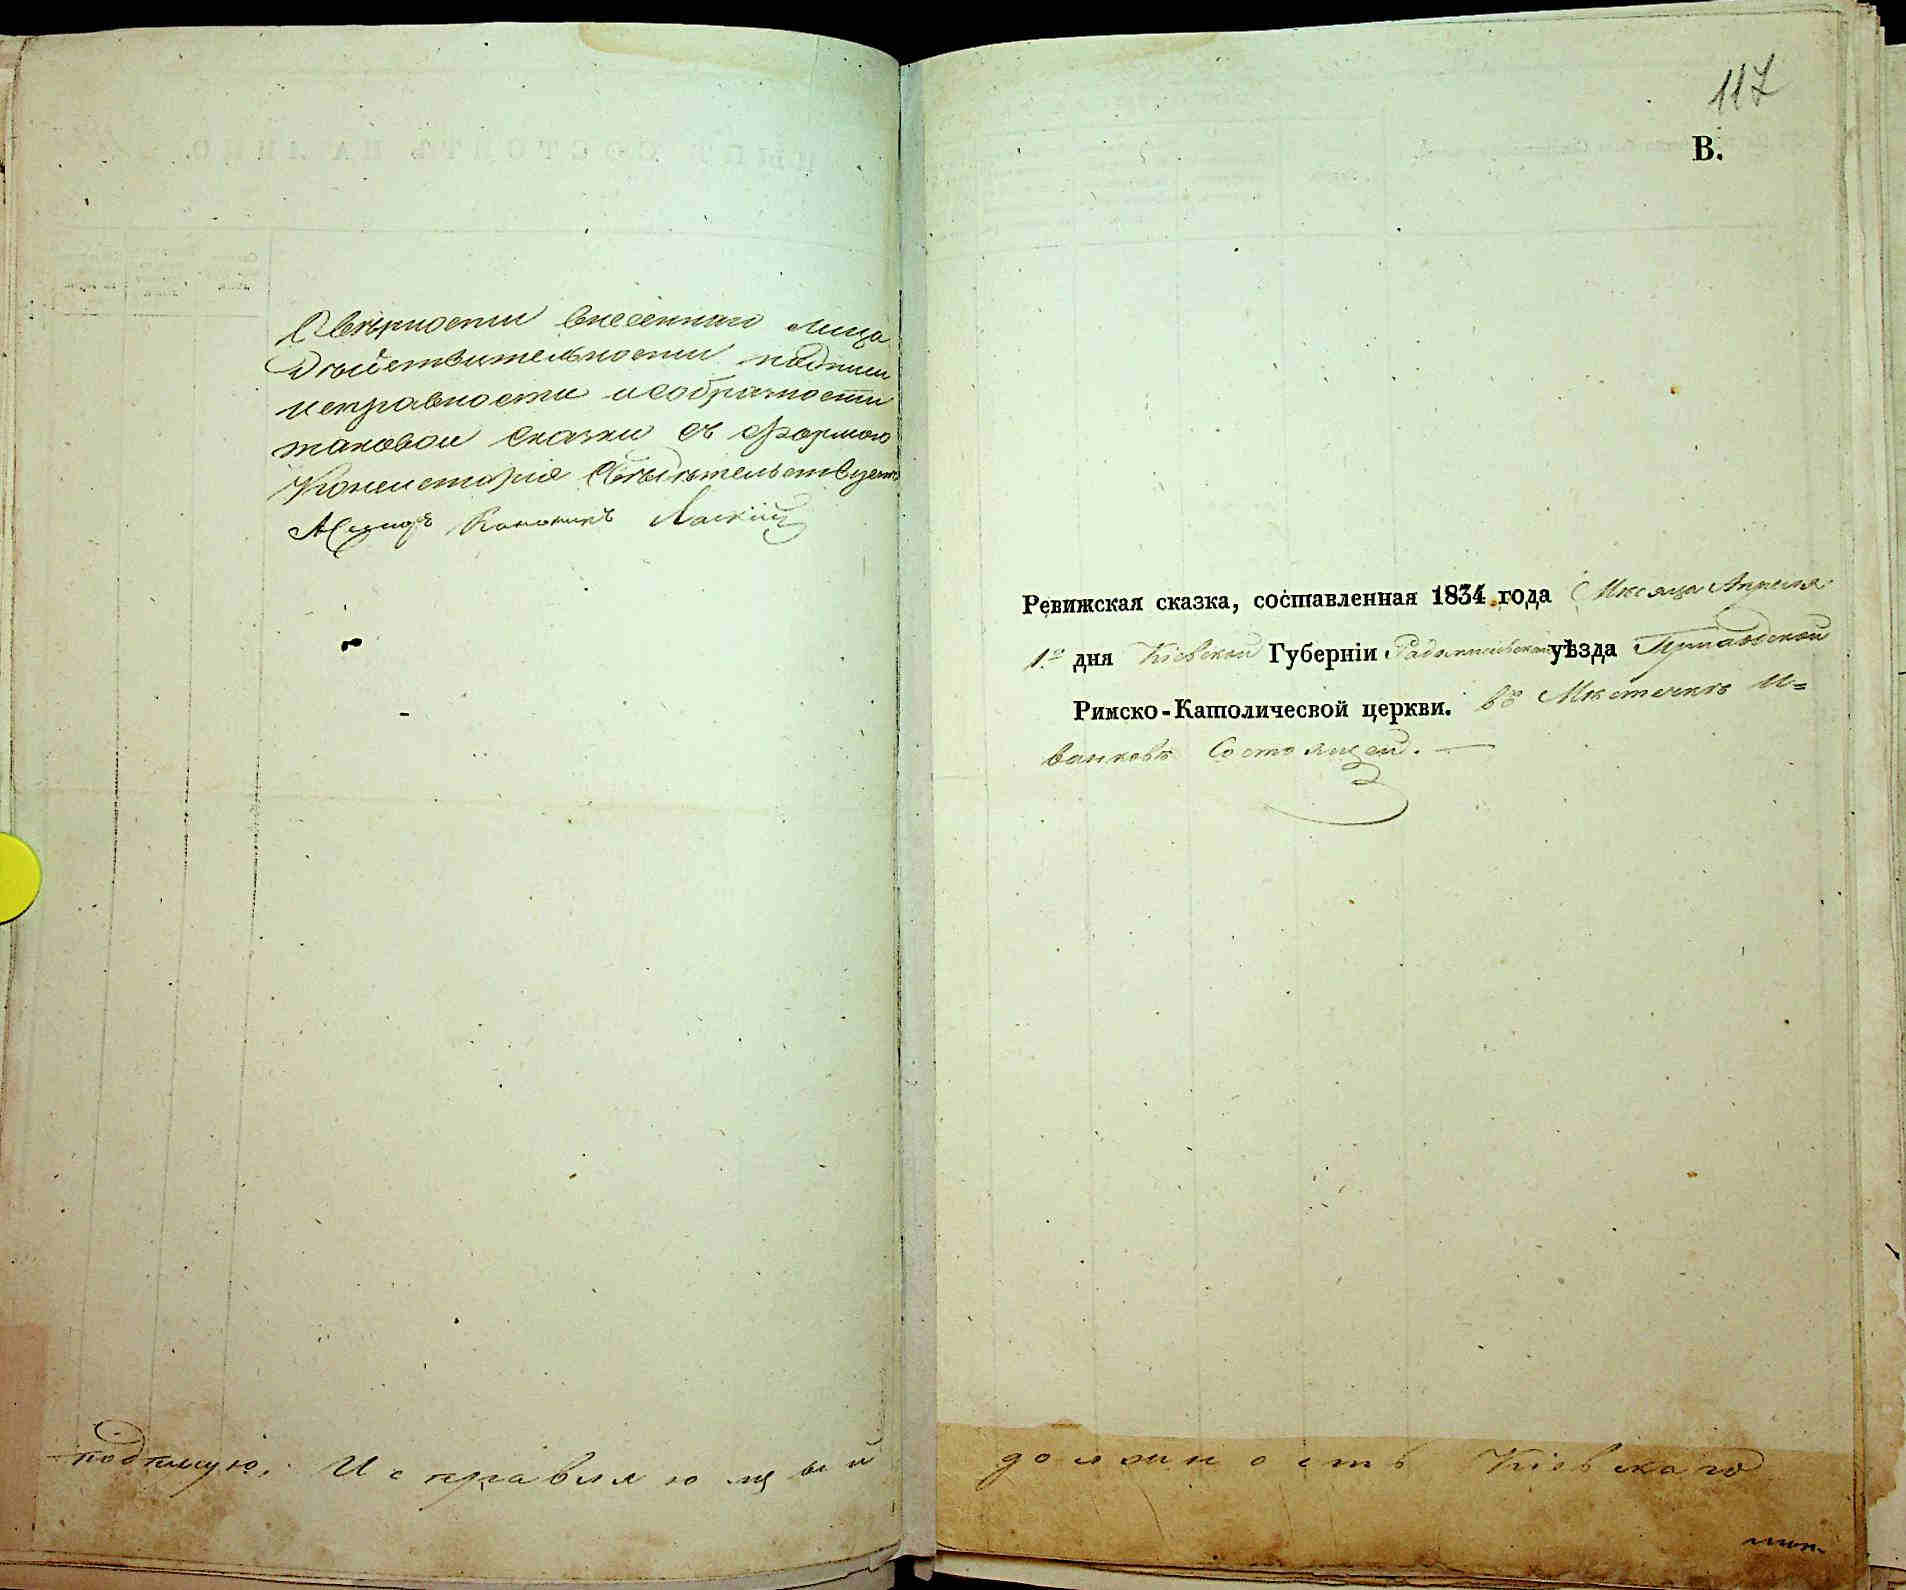 О верности внесенныхъ лицъ
Действительности подписи
исправности и сообразности
таковой сказки съ формою
Консисторія Свидѣтельствуетъ
Каноникъ
подписую. Исправляющый
117
В.
Ревижская сказка, составленная 1834 года Мѣсяца Апреля
1го дня Кіевской Губерніи Радомысльской уѣзда
Римско-Католической церкви. въ Мѣстечкѣ И=
ванковѣ Состоящей.
должность Кіевскаго